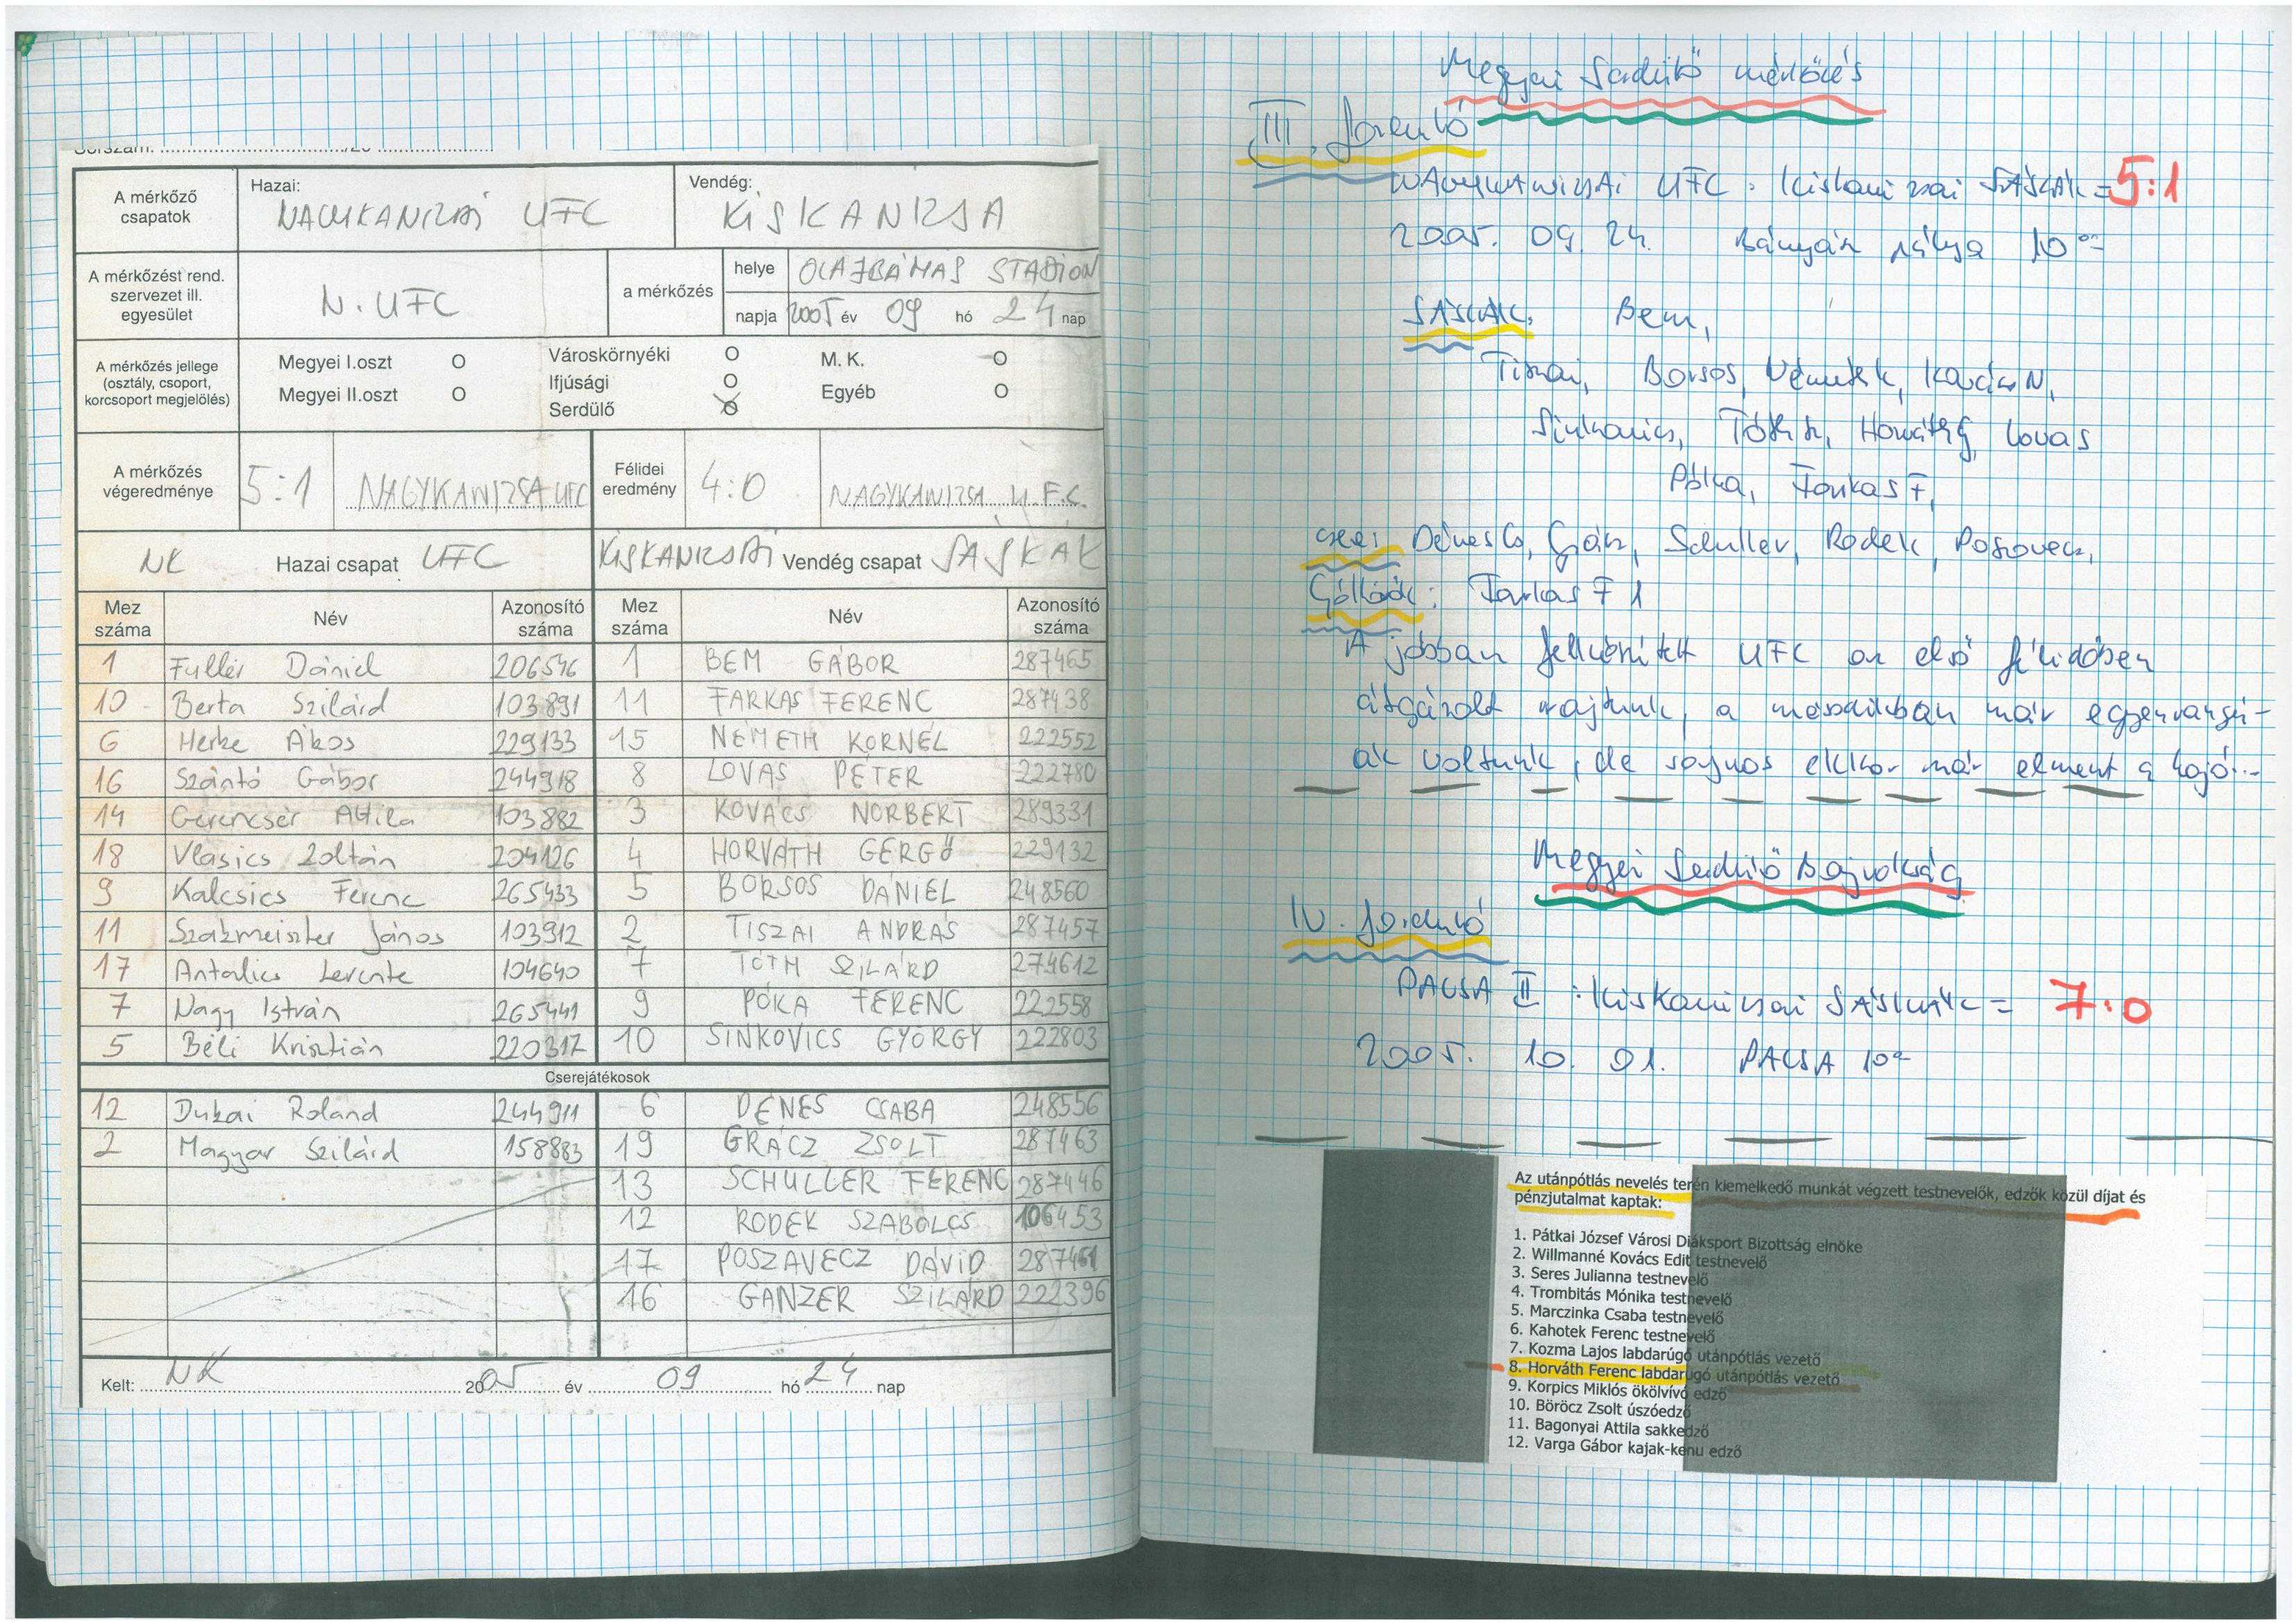 Sorszám: ................/20 ................
A mérkőző csapatok
Hazai:
NAGYKANIZSAI UFC
Vendég:
KISKANIZSA
A mérkőzést rend. szervezet ill. egyesület
N. UFC
a mérkőzés
helye OLAJBÁNYÁS STADION
napja 2005 év 09 hó 24 nap
A mérkőzés jellege (osztály, csoport, korcsoport megjelölés)
Megyei I.oszt O
Megyei II.oszt O
Városkörnyéki O
Ifjúsági O
Serdülő O
M. K. O
Egyéb O
A mérkőzés végeredménye
5:1 NAGYKANIZSA UFC
Félidei eredmény
4:0 NAGYKANIZSA U.F.C.
NK Hazai csapat UFC
KISKANIZSAI Vendég csapat SÁSKÁK
Mez száma Név Azonosító száma Mez száma Név Azonosító száma
1 Fullér Dániel 206546 1 BEM GÁBOR 287465
10 Berta Szilárd 103891 11 FARKAS FERENC 287438
6 Herke Ákos 229133 15 NÉMETH KORNÉL 222552
16 Szántó Gábor 244918 8 LOVAS PÉTER 222780
14 Gerencsér Attila 103882 3 KOVÁCS NORBERT 289331
18 Vlasics Zoltán 204126 4 HORVÁTH GERGŐ 229132
9 Kalcsics Ferenc 265433 5 BORSOS DÁNIEL 248560
11 Szakmeiszter János 103912 2 TISZAI ANDRÁS 287457
17 Antalics Levente 104640 7 TÓTH SZILÁRD 274612
7 Nagy István 265441 9 PÓKA FERENC 222558
5 Béli Krisztián 220317 10 SINKOVICS GYÖRGY 222803
Cserejátékosok
12 Dukai Roland 244911 6 DÉNES CSABA 248556
2 Magyar Szilárd 158883 19 GRÁCZ ZSOLT 287463
13 SCHULLER FERENC 287446
12 RODEK SZABOLCS 106453
17 POSZAVECZ DÁVID 287461
16 GANZER SZILÁRD 222396
Kelt: NK 2005 év 09 hó 24 nap
Megyei Serdülő mérkőzés
III. forduló
NAGYKANIZSAI UFC : Kiskanizsai SÁSKÁK = 5:1
2005. 09. 24. Bányász pálya 10⁰⁰
SÁSKÁK: Bem,
Tiszai, Borsos, Németh K, Kovács N,
Sinkovics, Tóth Sz, Horváth G, Lovas
Póka, Farkas F,
csere: Dénes Cs, Grácz, Schuller, Rodek, Poszavecz,
Góllövők: Farkas F 1
A jobban felkészített UFC az első félidőben
átgázolt rajtunk, a másodikban már egyenrangú-
ak voltunk, de sajnos ekkor már elment a hajó...
Megyei Serdülő Bajnokság
IV. forduló
PACSA II : Kiskanizsai SÁSKÁK = 7:0
2005. 10. 01. PACSA 10⁰⁰
Az utánpótlás nevelés terén kiemelkedő munkát végzett testnevelők, edzők közül díjat és
pénzjutalmat kaptak:
1. Pátkai József Városi Diáksport Bizottság elnöke
2. Willmanné Kovács Edit testnevelő
3. Seres Julianna testnevelő
4. Trombitás Mónika testnevelő
5. Marczinka Csaba testnevelő
6. Kahotek Ferenc testnevelő
7. Kozma Lajos labdarúgó utánpótlás vezető
8. Horváth Ferenc labdarúgó utánpótlás vezető
9. Korpics Miklós ökölvívó edző
10. Böröcz Zsolt úszóedző
11. Bagonyai Attila sakkedző
12. Varga Gábor kajak-kenu edző